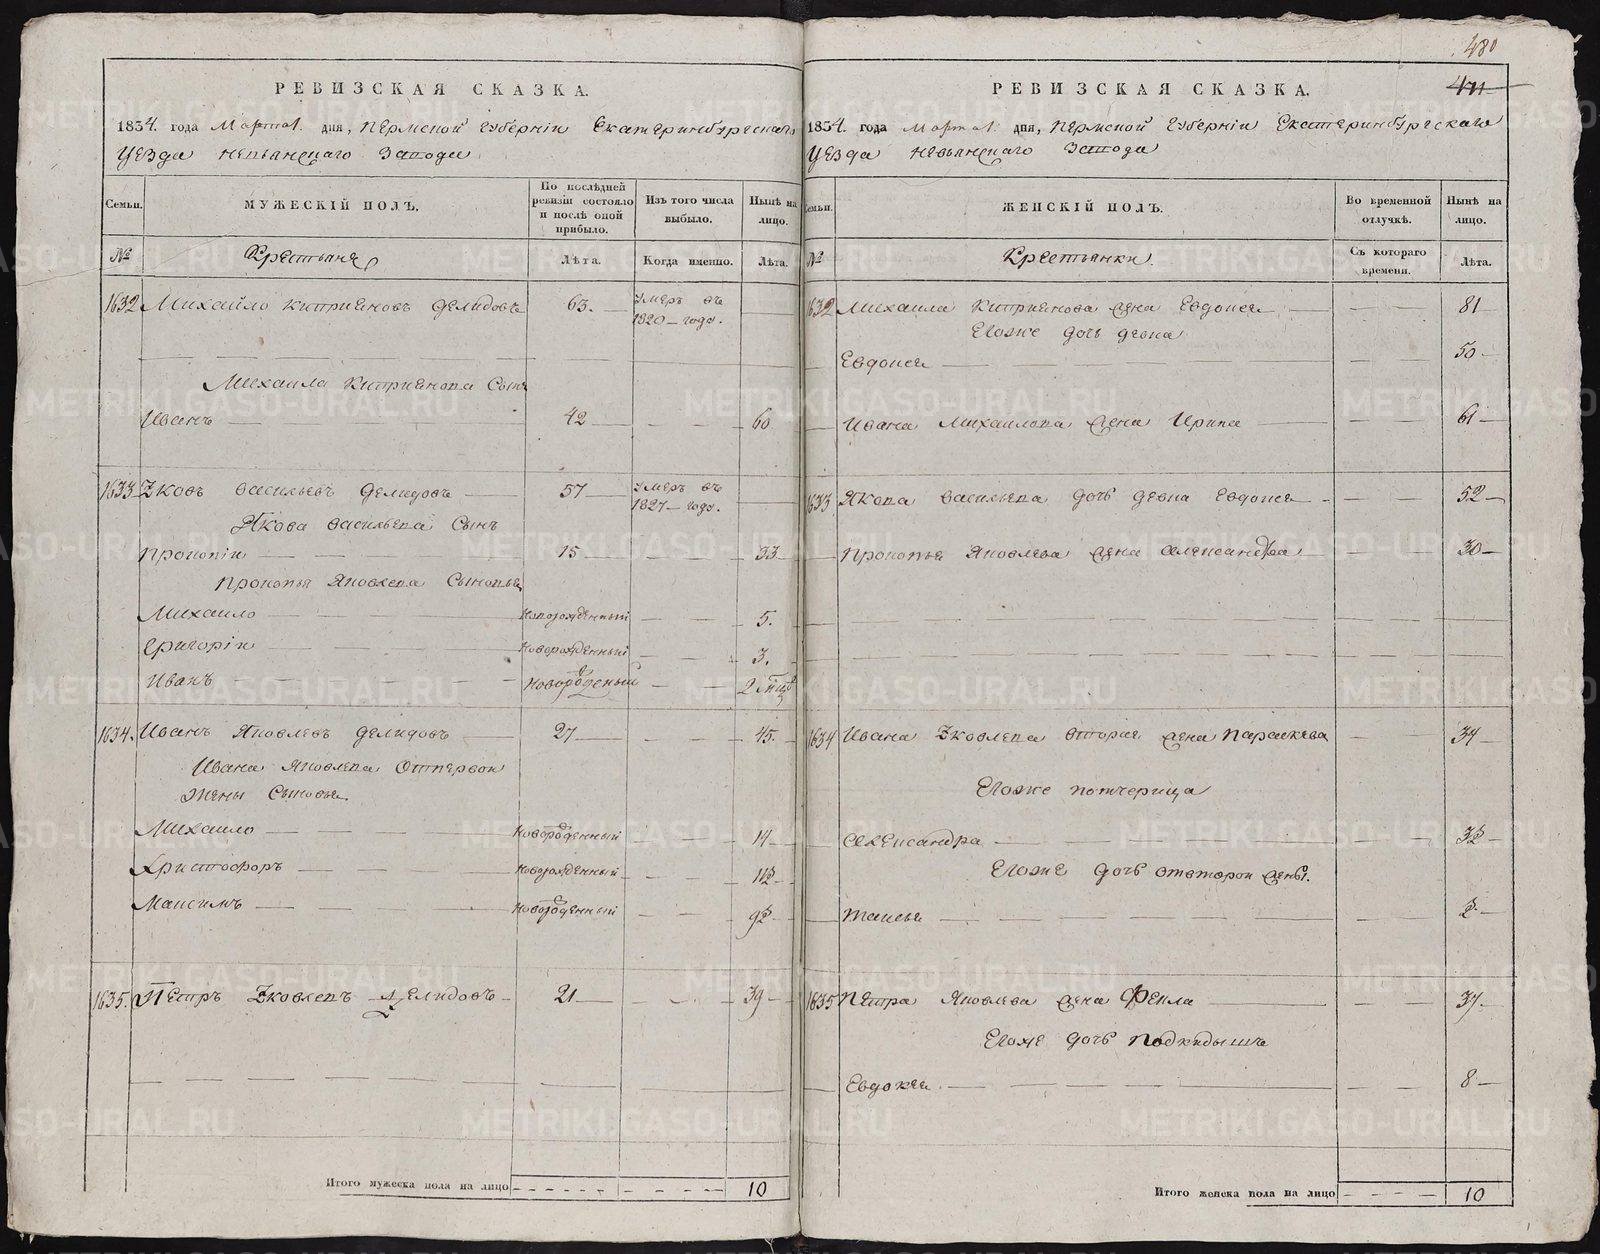 480
РЕВИЗСКАЯ СКАЗКА.
1834. года Марта 1. дня, Пермской Губерніи Екатеринбургскаго
Уезда Невьянскаго Завода
Семьи.
МУЖЕСКІЙ ПОЛЪ.
По послѣдней ревизіи состояло и послѣ оной прибыло.
Изъ того числа выбыло.
Нынѣ на лицо.
№
Крестьяне
Лѣта.
Когда именно.
Лѣта.
1632 Михайло Киприяновъ Делидовъ 63. Умеръ въ 1820 году.
Михаила Киприянова Сынъ
Иванъ 42 60
1633 Яковъ Васильевъ Делидовъ 57 Умеръ въ 1827 году.
Якова Васильева Сынъ
Прокопіи 15 33
Прокопья Яковлева Сыновья
Михаило Новорожденный 5.
Григоріи Новорожденный 3.
Иванъ Новорожденый 2
1634. Иванъ Яковлевъ Делидовъ 27 45.
Ивана Яковлева Отпервои
Жены Сыновья
Михаило Новорожденный 14
Христофоръ Новорожденный 11½
Максимъ Новорожденный 9½
1635. Петръ Яковлевъ Делидовъ 21 39
Итого мужеска пола на лицо 10
РЕВИЗСКАЯ СКАЗКА.
1834. года Марта 1. дня, Пермской Губерніи Екатеринбургскаго
Уезда Невьянскаго Завода
Семьи.
ЖЕНСКІЙ ПОЛЪ.
Во временной отлучкѣ.
Нынѣ на лицо.
№
Крестьянки.
Съ котораго времени.
Лѣта.
1632 Михаила Киприянова жена Евдокея 81
Егоже дочь девка
Евдокея 50
Ивана Михаилова жена Ирина 61
1633 Якова Васильева дочь девка Евдокея 52
Прокопья Яковлева жена Александра 30
1634 Ивана Яковлева вторая жена Параскева 34
Егоже
Александра
Егоже дочь отвторои жены.
1635 Петра Яковлева жена Фекла 37.
Егоже дочь Подкидышъ
Евдокея. 8
Итого женска пола на лицо 10
METRIKI.GASO-URAL.RU